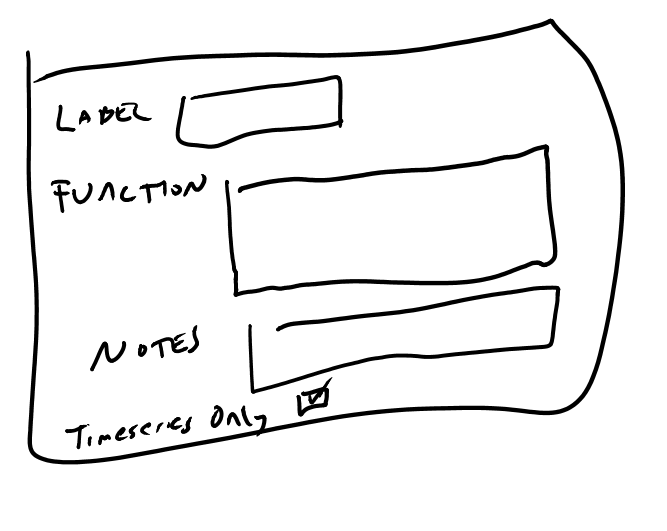 LABEL
FUNCTION
NOTES
Timeseries Only